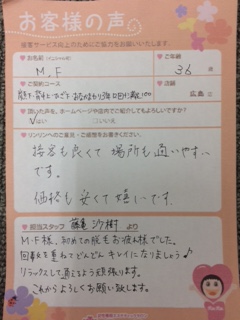 お客様の声
接客サービス向上のためにご協力をお願いいたします。
お名前
ご年齢
M.F
36 歳
ご契約コース
店舗
広島
頂いた声を、ホームページや店内でご紹介してもよろしいですか?
はい いいえ
リンリンへのご意見・ご感想をお書きください。
接客も良くて場所も通いやすい
です。
価格も安くて嬉しいです。
担当スタッフ
より
M.F様、初めての脱毛お疲れ様でした。
回数を重ねてどんどんキレイになりましょう♪
リラックスして通えるよう頑張ります。
これからよろしくお願い致します。